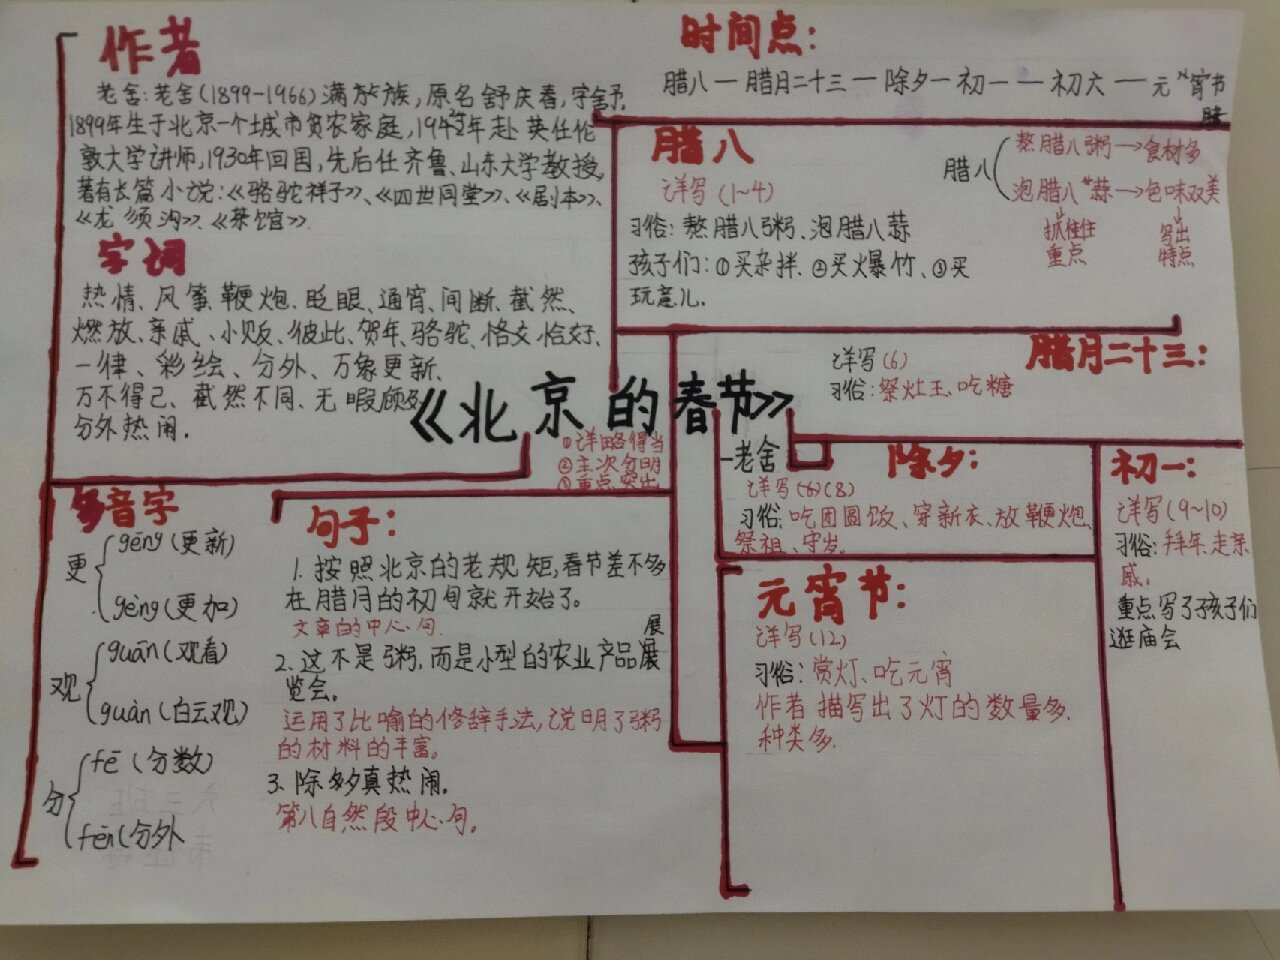 作者
老舍:老舍(1899-1966)满族,原名舒庆春,字舍予.
1899年生于北京一个城市贫农家庭,1942年赴英任伦
敦大学讲师,1930年回国,先后任齐鲁、山东大学教授,
著有长篇小说:《骆驼祥子》、《四世同堂》、《剧本》、
《龙须沟》、《茶馆》.
字词
热情、风筝、鞭炮、眨眼、通宵、间断、截然、
燃放、亲戚、小贩、彼此、贺年、骆驼、恰好、
一律、彩绘、分外、万象更新、
万不得已、截然不同、无暇顾及
分外热闹.
多音字
更
gēng(更新)
gèng(更加)
观
guān(观看)
guàn(白云观)
分
fē(分数)
fèn(分外
《北京的春节》
—老舍
①详略得当
②主次分明
③重点突出
句子:
1.按照北京的老规矩,春节差不多
在腊月的初旬就开始了。
文章的中心句.
2.这不是粥,而是小型的农业产品展
览会。
运用了比喻的修辞手法,说明了粥
的材料的丰富。
3.除夕真热闹.
第八自然段中心句。
时间点:
腊八—腊月二十三—除夕—初一—初六—元宵节
腊八
详写(1~4)
习俗:熬腊八粥、泡腊八蒜
孩子们:①买杂拌.②买爆竹、③买
玩意儿.
腊八
熬腊八粥→食材多
泡腊八蒜→色味双美
抓住
重点
写出
特点
腊月二十三:
详写(6)
习俗:祭灶王、吃糖
除夕:
详写(6)(8)
习俗:吃团圆饭、穿新衣、放鞭炮、
祭祖、守岁.
初一:
详写(9~10)
习俗:拜年.走亲
戚.
重点写了孩子们
逛庙会
元宵节:
详写(12)
习俗:赏灯、吃元宵
作者描写出了灯的数量多、
种类多.